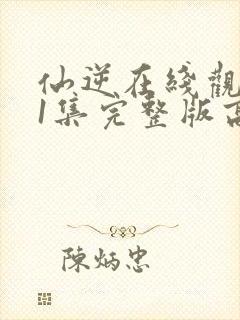 仙逆在线觀
1集完整版高
陳炳忠